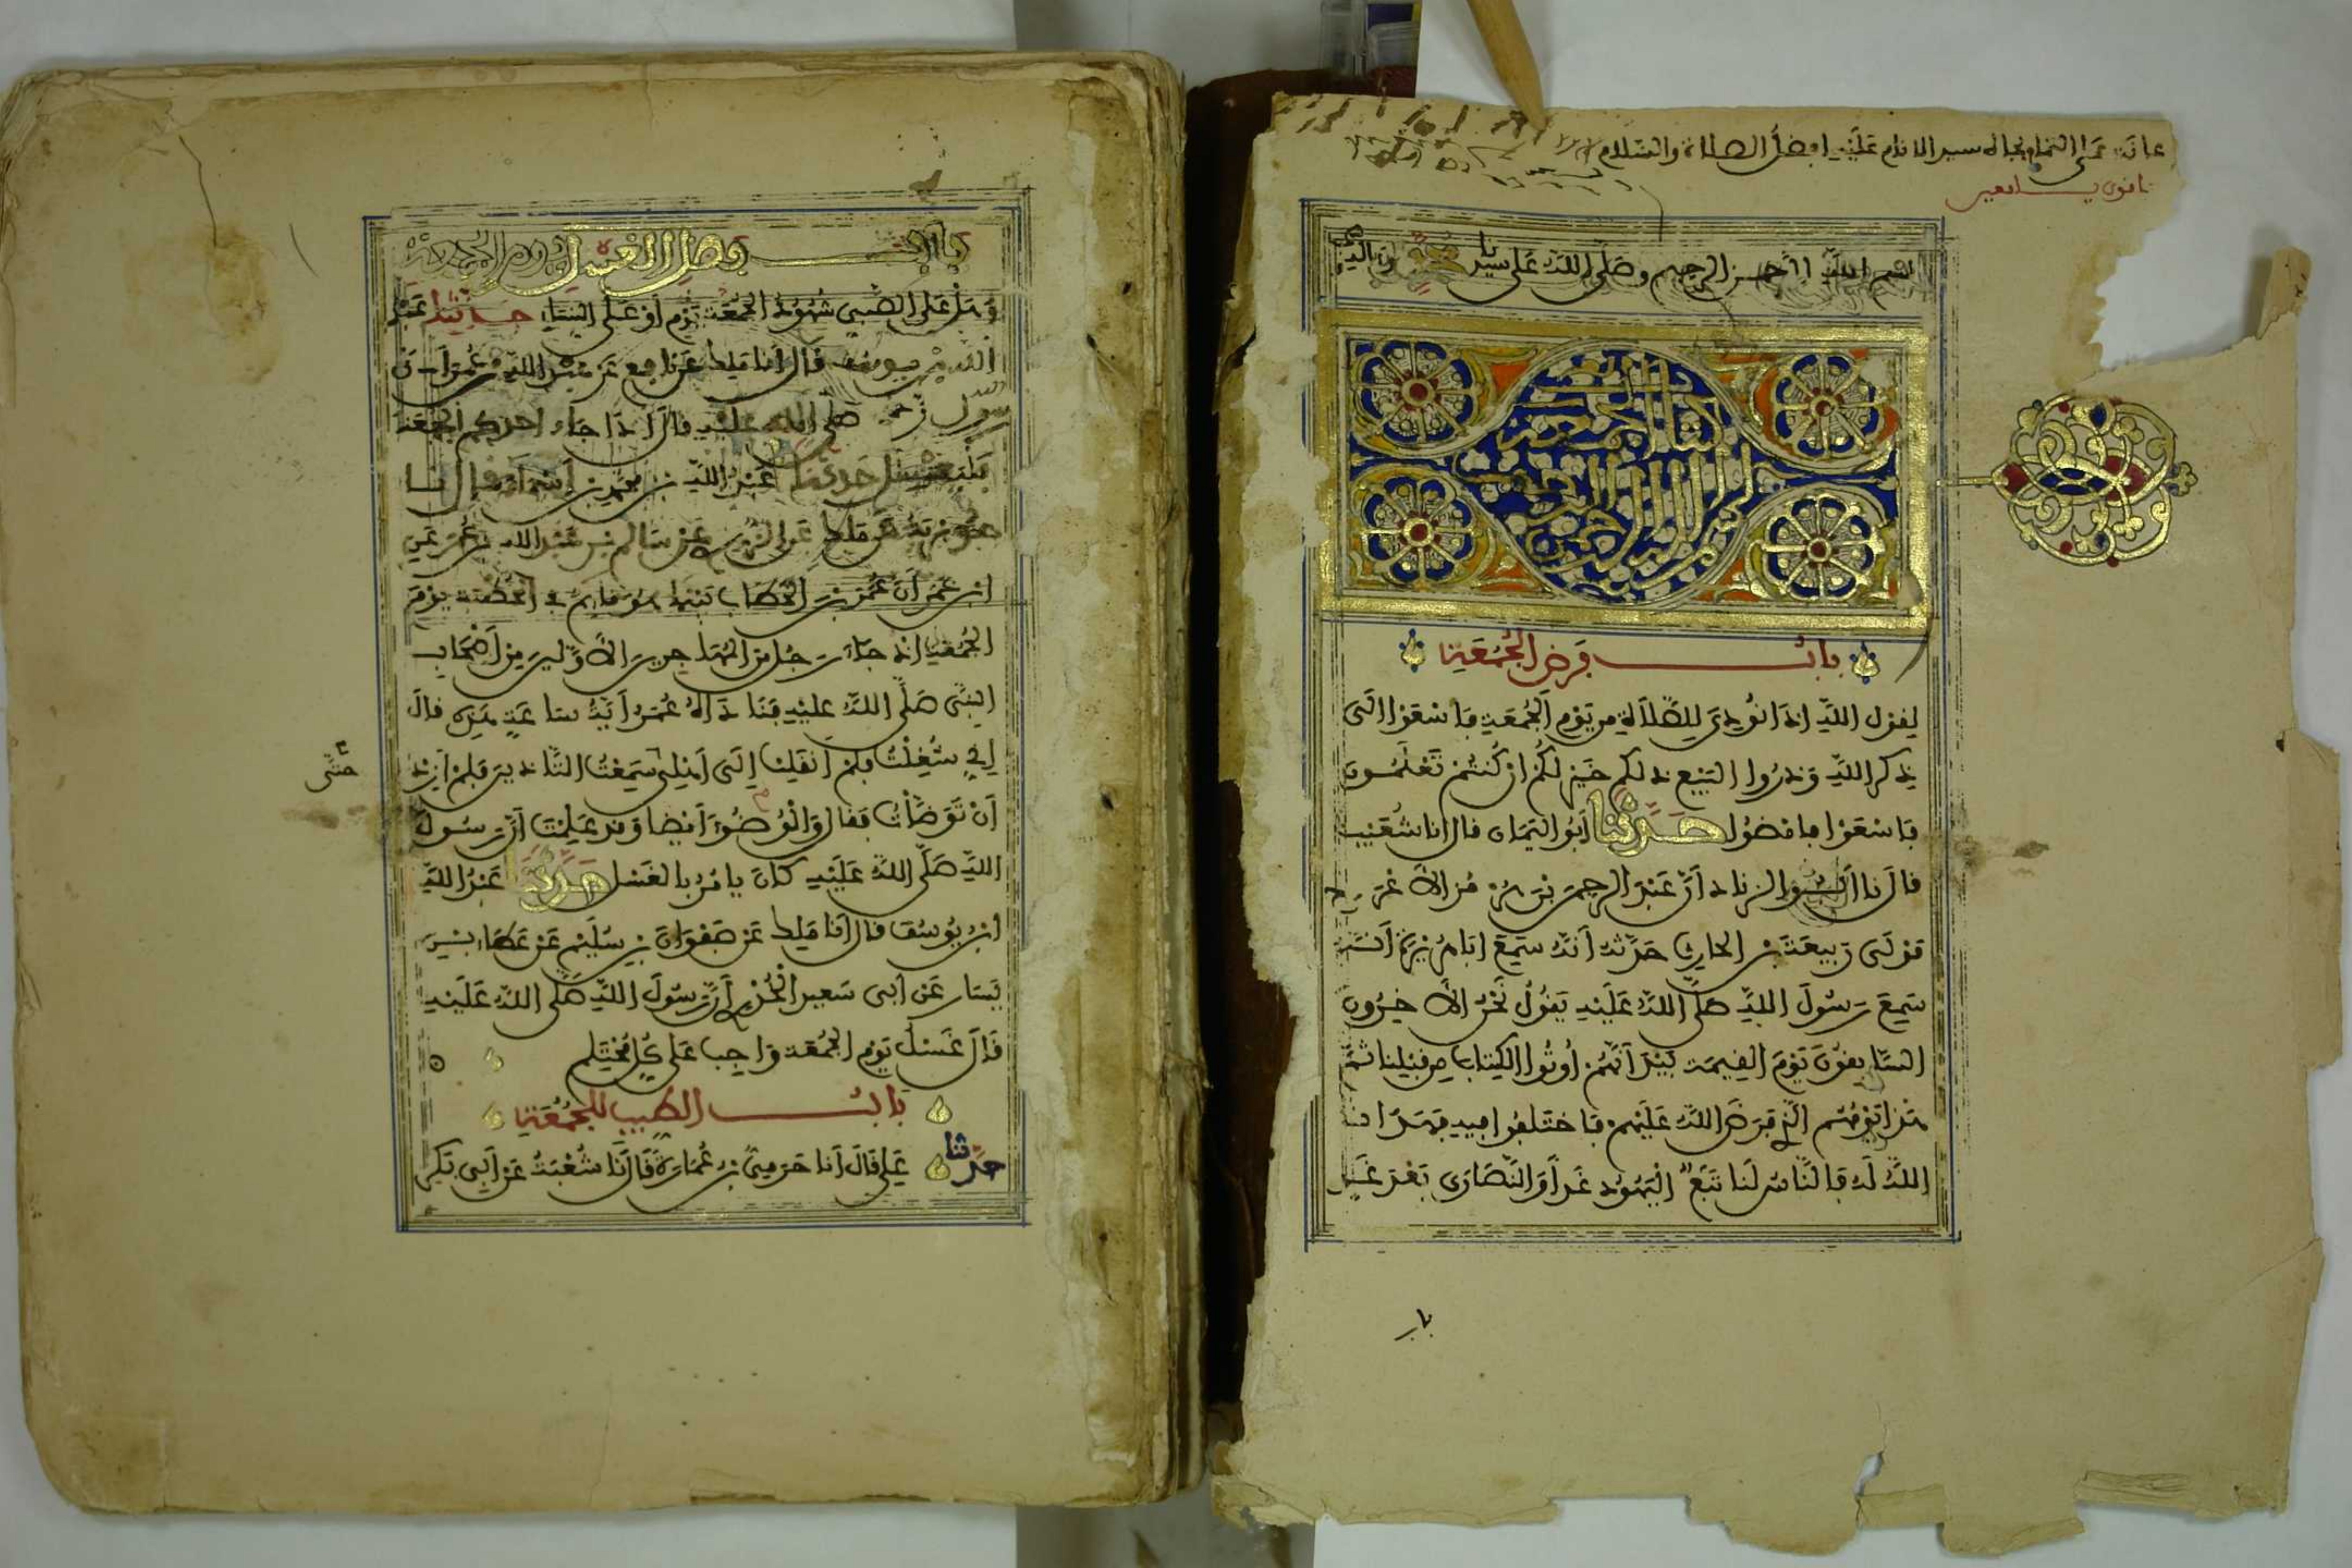 عانه على التمام بجاه سيد الانام عليه افضل الصلاة والسلام
بسم الله الرحمن الرحيم وصلى الله على سيدنا محمد وعلى اله
كتاب الجمعة
باب فرض الجمعة
لقول الله اذا نودي للصلاة من يوم الجمعة فاسعوا الى
ذكر الله وذروا البيع ذلكم خير لكم ان كنتم تعلمون
فاسعوا فامضوا حدثنا ابو اليمان قال انا شعيب
قال نا ابو الزناد ان عبد الرحمن بن هرمز الاعرج
مولى ربيعة بن الحارث حدثه انه سمع ابا هريرة انه
سمع رسول الله صلى الله عليه يقول نحن الاخرون
السابقون يوم القيمة بيد انهم اوتوا الكتاب من قبلنا ثم
هذا يومهم الذي فرض الله عليهم فاختلفوا فيه فهدانا
الله له فالناس لنا تبع اليهود غدا والنصارى بعد غد
باب
باب فضل الغسل يوم الجمعة
وهل على الصبي شهود الجمعة يوم او على النساء حدثنا عبد
الله بن يوسف قال انا ملك عن نافع عن عبد الله بن عمر ان
رسول الله صلى الله عليه قال اذا جاء احدكم الجمعة
فليغتسل حدثنا عبد الله بن محمد بن اسماء قال نا
جويرية عن ملك عن الزهري عن سالم بن عبد الله بن عمر عن
ابن عمر ان عمر بن الخطاب بينما هو قايم في الخطبة يوم
الجمعة اذ جاء رجل من المهاجرين الاولين من اصحاب
النبي صلى الله عليه فناداه عمر اية ساعة هذه قال
اني شغلت فلم انقلب الى اهلي سمعت التاذين فلم ازد
حتى
ان توضات فقال والوضوء ايضا وقد علمت ان رسول
الله صلى الله عليه كان يامر بالغسل حدثنا عبد الله
ابن يوسف قال انا ملك عن صفوان بن سليم عن عطاء بن
يسار عن ابي سعيد الخدري ان رسول الله صلى الله عليه
قال غسل يوم الجمعة واجب على كل محتلم
باب الطيب للجمعة
حدثنا علي قال انا حرمي بن عمارة قال نا شعبة عن ابي بكر